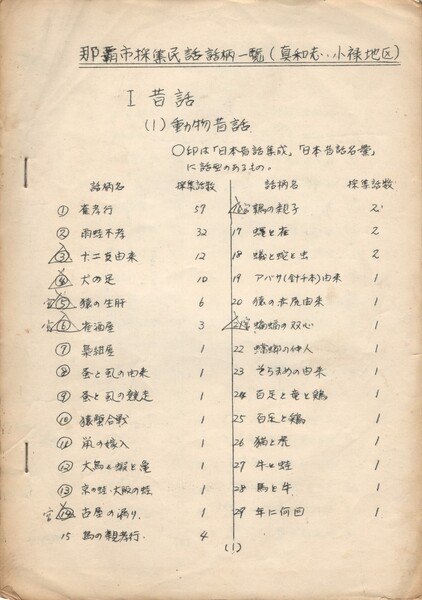 那覇市採集民話話柄一覧(真和志・小禄地区)
I 昔話
(1)動物昔話
○印は「日本昔話集成」、「日本昔話名彙」
に話型のあるもの。
話柄名 採集話数
① 雀孝行 57
② 雨蛙不孝 32
③ 十二支由来 12
④ 犬の足 10
⑤ 猿の生肝 6
⑥ 雀酒屋 3
⑦ 梟紺屋 1
⑧ 蚤と虱の由来 1
⑨ 蚤と虱の競走 1
⑩ 猿蟹合戦 1
⑪ 鼠の嫁入 1
⑫ 大鳥と蝦と亀 1
⑬ 京の蛙・大阪の蛙 1
⑭ 古屋の漏り 1
15 鳥の親孝行 4
話柄名 採集話数
鶏の親子 2
17 蠅と雀 2
18 蟻と蛇と虫 2
19 アバサ(針千本)由来 1
20 猿の赤尻由来 1
21 蝙蝠の双心 1
22 蟷螂の仲人 1
23 そらまめの由来 1
24 百足と竜と鶏 1
25 百足と鶏 1
26 猫と虎 1
27 牛と蛙 1
28 馬と牛 1
29 年に何回 1
(1)